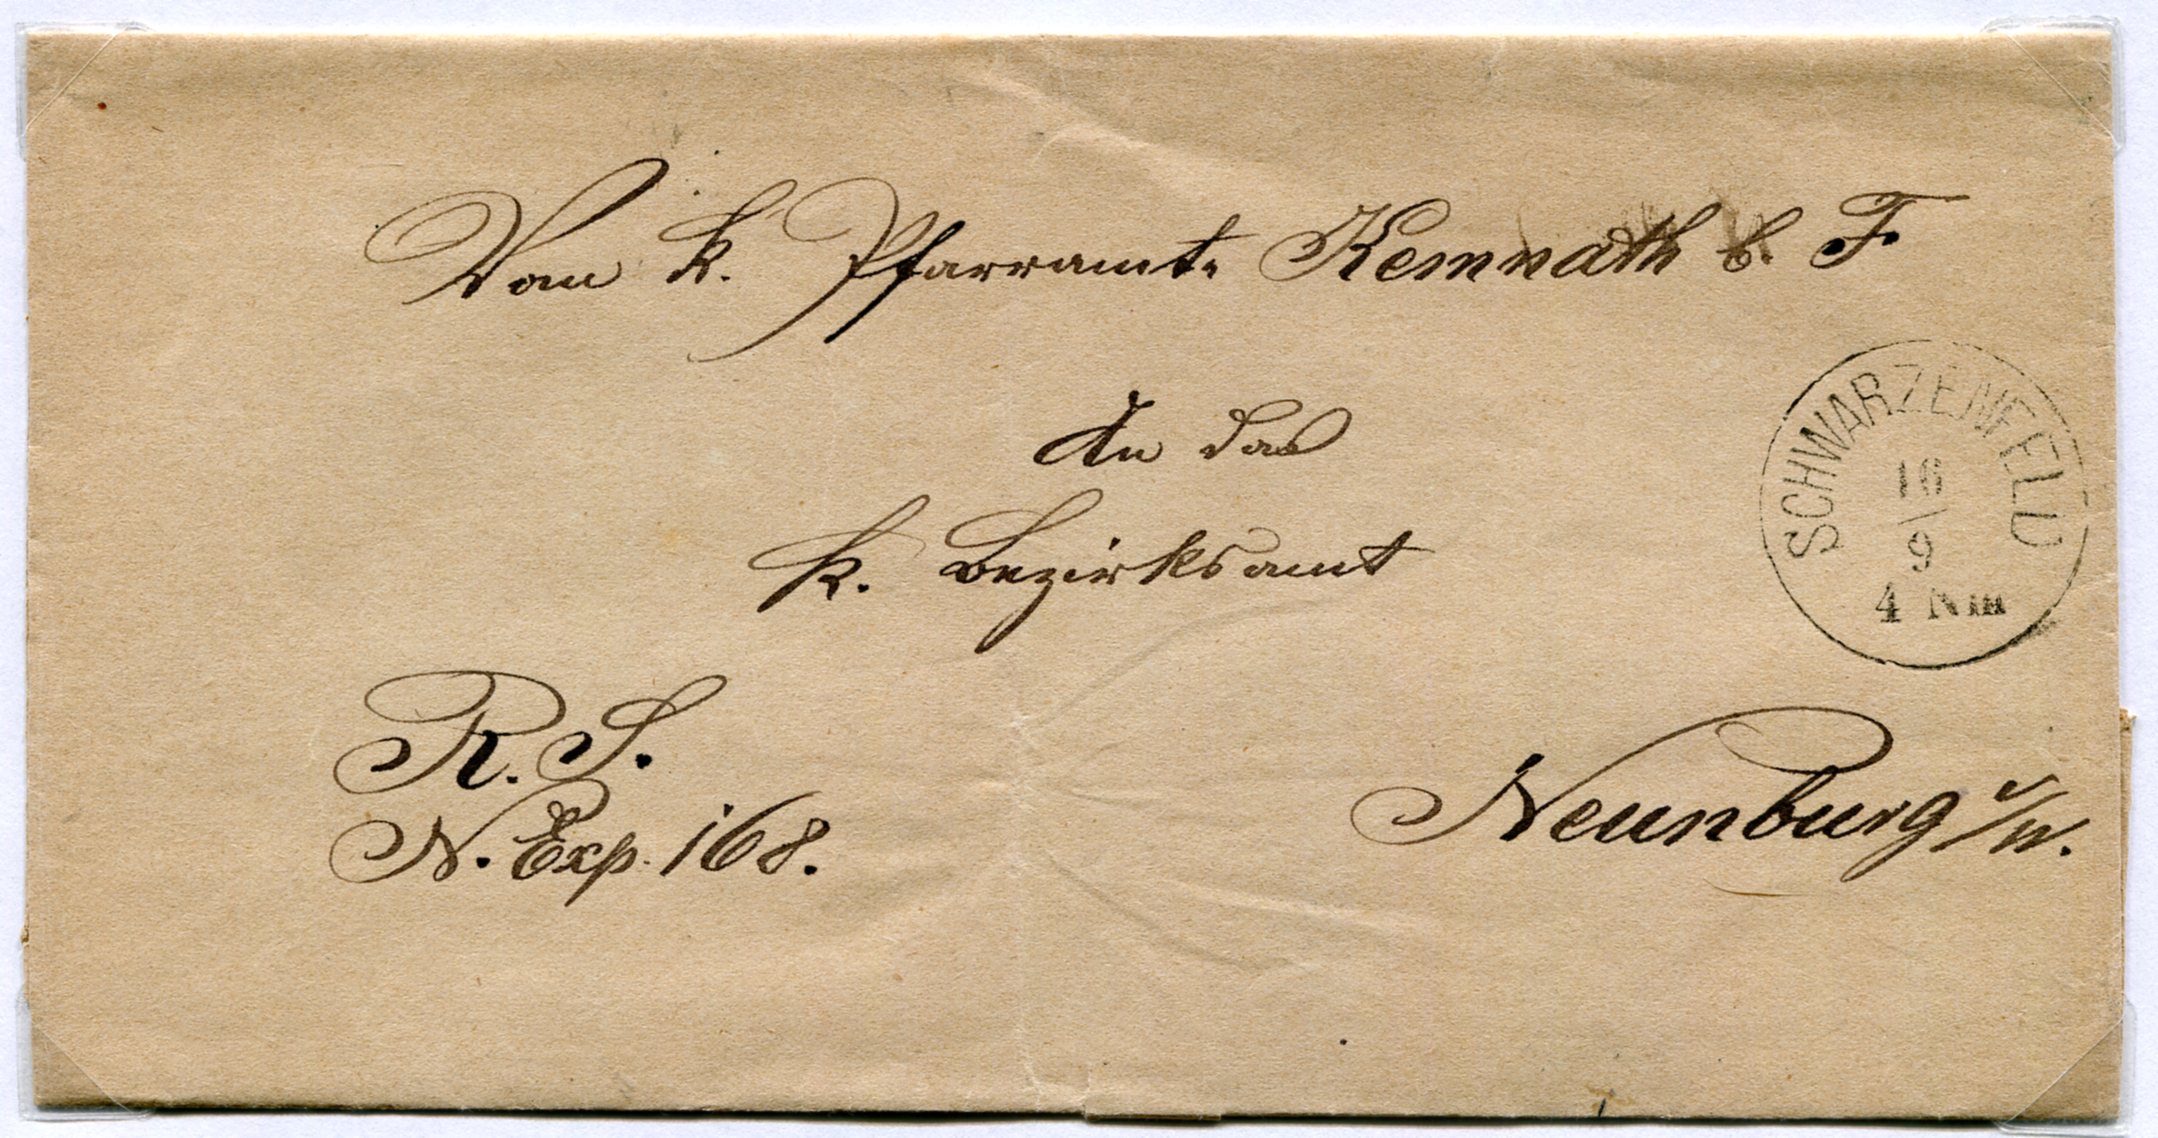 Vom k. Pfarramte Kemnath b. F
An das
k. Bezirksamt
SCHWARZENFELD
16
9
4 Nm
R. S.
N. Exp. 168.
Neunburg v/W.